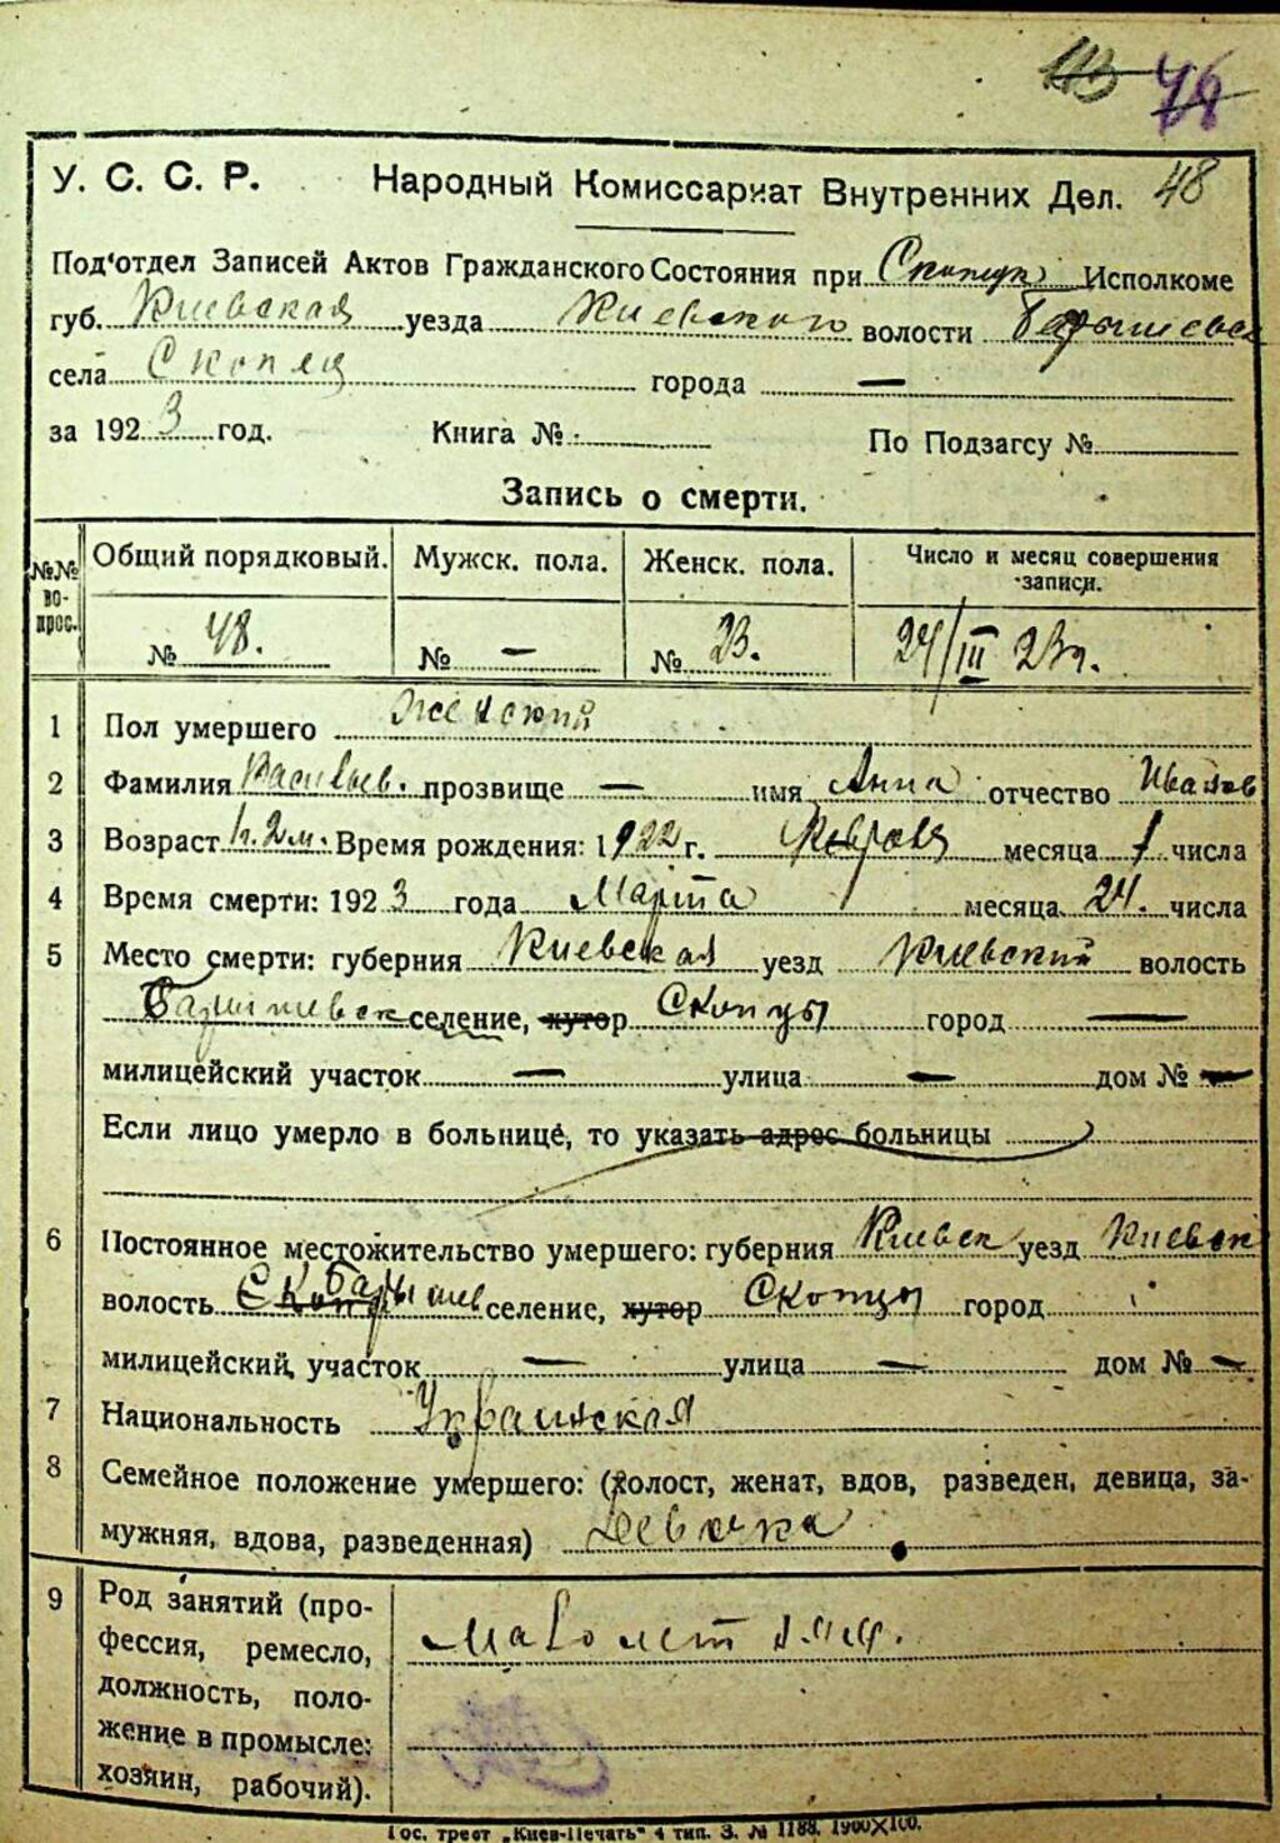 113 78
У. С. С. Р. Народный Комиссариат Внутренних Дел. 48
Под'отдел Записей Актов Гражданского Состояния при Исполкоме
губ. Киевская уезда Киевского волости Барышевск
села Скопец города —
за 1923 год. Книга № По Подзагсу №
Запись о смерти.
№№ вопрос. Общий порядковый. Мужск. пола. Женск. пола. Число и месяц совершения записи.
№ 48. № — № 23. 24/III 23г.
1 Пол умершего Женский
2 Фамилия Васильев. прозвище — имя Анна отчество Иванов
3 Возраст 1г. 2м. Время рождения: 1922 г. Февраля месяца 1 числа
4 Время смерти: 1923 года Марта месяца 24. числа
5 Место смерти: губерния Киевская уезд Киевский волость
Барышевск селение, хутор Скопцы город —
милицейский участок — улица — дом № —
Если лицо умерло в больнице, то указать адрес больницы
6 Постоянное местожительство умершего: губерния Киевск уезд Киевск
волость Барышев селение, хутор Скопцы город
милицейский участок — улица — дом № —
7 Национальность Украинская
8 Семейное положение умершего: (холост, женат, вдов, разведен, девица, за-
мужняя, вдова, разведенная) Девочка
9 Род занятий (про-
фессия, ремесло,
должность, поло-
жение в промысле:
хозяин, рабочий).
Гос. трест „Киев-Печать“ 4 тип. З. № 1188. 1900×100.